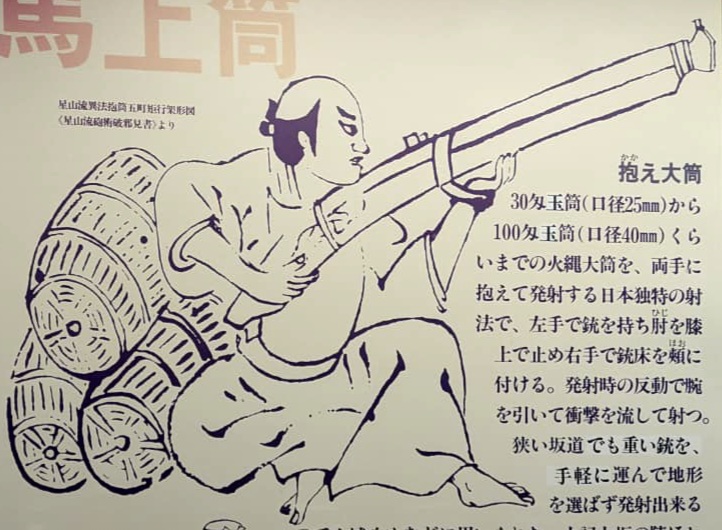 馬上筒
星山流異法抱筒五町矩行架形図
《星山流砲術破邪見書》より
抱え大筒
かか
30匁玉筒（口径25㎜）から
100匁玉筒（口径40㎜）くら
いまでの火縄大筒を、両手に
抱えて発射する日本独特の射
法で、左手で銃を持ち肘を膝
ひじ
上で止め右手で銃床を頬に
ほお
付ける。発射時の反動で腕
を引いて衝撃を流して射つ。
狭い坂道でも重い銃を、
手軽に運んで地形
を選ばず発射出来る